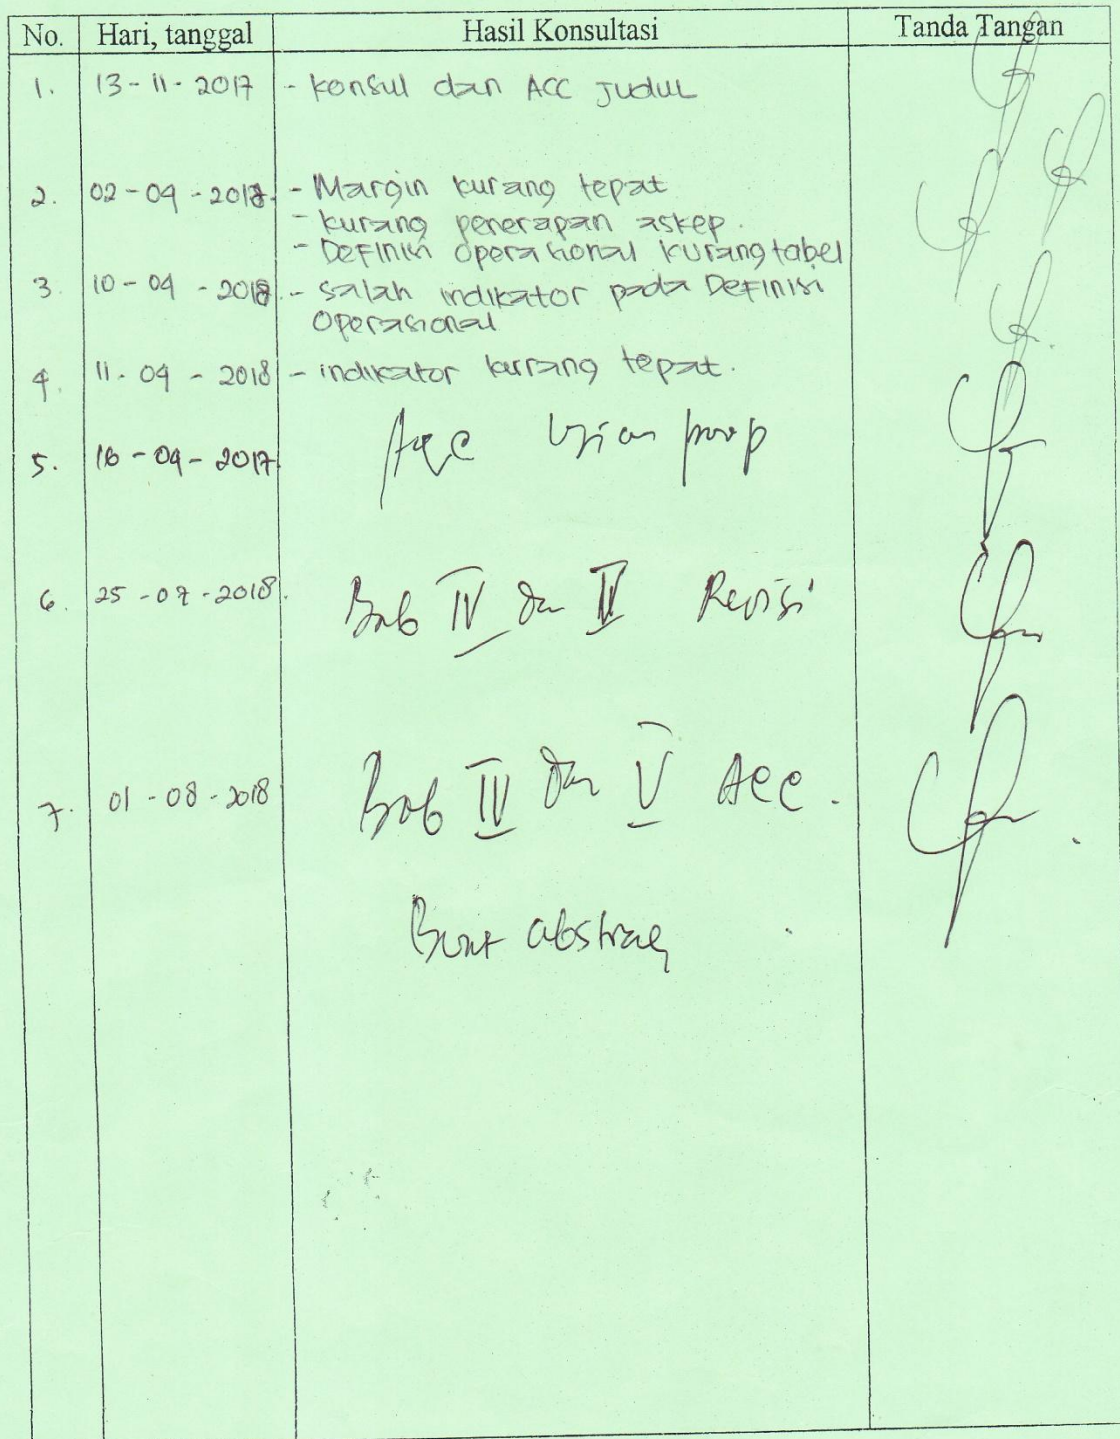 No. Hari, tanggal Hasil Konsultasi Tanda Tangan
1. 13-11-2017 - Konsul dan ACC Judul
2. 02-04-2018. - Margin kurang tepat
- kurang penerapan askep.
- Definisi operasional kurang tabel
3. 10-04-2018. - Salah indikator pada Definisi
Operasional
4. 11-04-2018 - indikator kurang tepat.
5. 16-04-2017 Acc Ujian prop
6. 25-07-2018. Bab IV dan V Revisi
7. 01-08-2018 Bab IV dan V Acc.
Buat abstrak